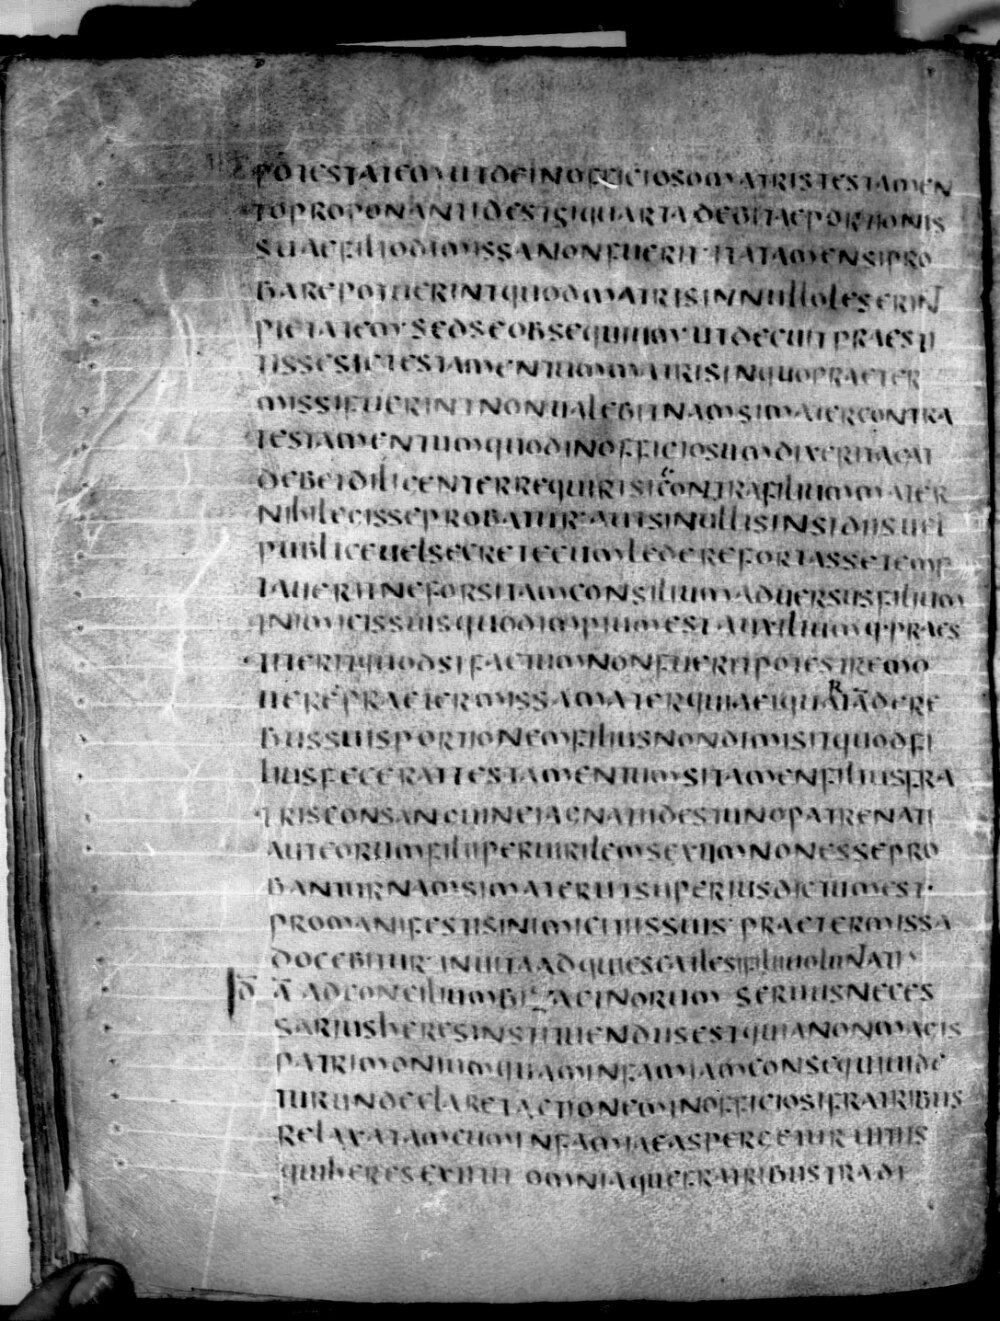 POTESTATEM UT DE INOFFICIOSO MATRIS TESTAMEN
TO PROPONANT ID EST SI QUARTA DEBITAE PORTIONIS
SUAE FILIO DIMISSA NON FUERIT ITA TAMEN SI PRO
BARE POTUERINT QUOD MATRIS IN NULLO LESERINT
PIETATEM SED SE OBSEQUIUM UT DECUIT PRAESTI
TISSE SIC TESTAMENTUM MATRIS IN QUO PRAETER
MISSI FUERINT NON UALEBIT NAM SI MATER CONTRA
TESTAMENTUM QUOD INOFFICIOSUM DIXERIT AGAT
DEBET DILIGENTER REQUIRI SI CONTRA FILIUM MATER
NIHIL EGISSE PROBATUR AUT SI NULLIS INSIDIIS UEL
PUBLICE UEL SECRETE CUM LEDERE FORTASSE TEMP
TAUERIT NE FORSITAM CONSILIUM ADUERSUS FILIUM
INIMICIS SUIS QUOD IMPIUM EST AUXILIUMQ PRAES
TITERIT QUOD SI FACTUM NON FUERIT POTEST REMO
UERE PRAETERMISSA MATER QUIA EI QUARTA DE RE
BUS SUIS PORTIONEM FILIUS NON DIMISIT QUOD FI
LIUS FECERAT TESTAMENTUM SI TAMEN FILIUS FRA
TRIS CONSANGUINEI AGNATI ID EST UNO PATRE NATI
AUT EORUM FILII PER UIRILEM SEXUM NON ESSE PRO
BANTUR NAM SI MATER UT SUPERIUS DICTUM EST
PRO MANIFESTIS INIMICITIIS SUIS PRAETERMISSA
DOCEBITUR IN UITA ADQUIESCAT LES FILIUM NATI
ID A AD CONCILIUM BIZACINORUM SERUUS NECES
SARIUS HERES INSTITUENDUS EST QUIA NON MAGIS
PATRIMONIUM QUAM INFAMIAM CONSEQUI UIDE
TUR UNDE CLARET ACTIONEM INOFFICIOSI FRATRIBUS
RELAXATAM CUM INFAMIAE ASPERGETUR UITIIS
QUI HERES EXTITIT OMNIAQUE FRATRIBUS TRADI